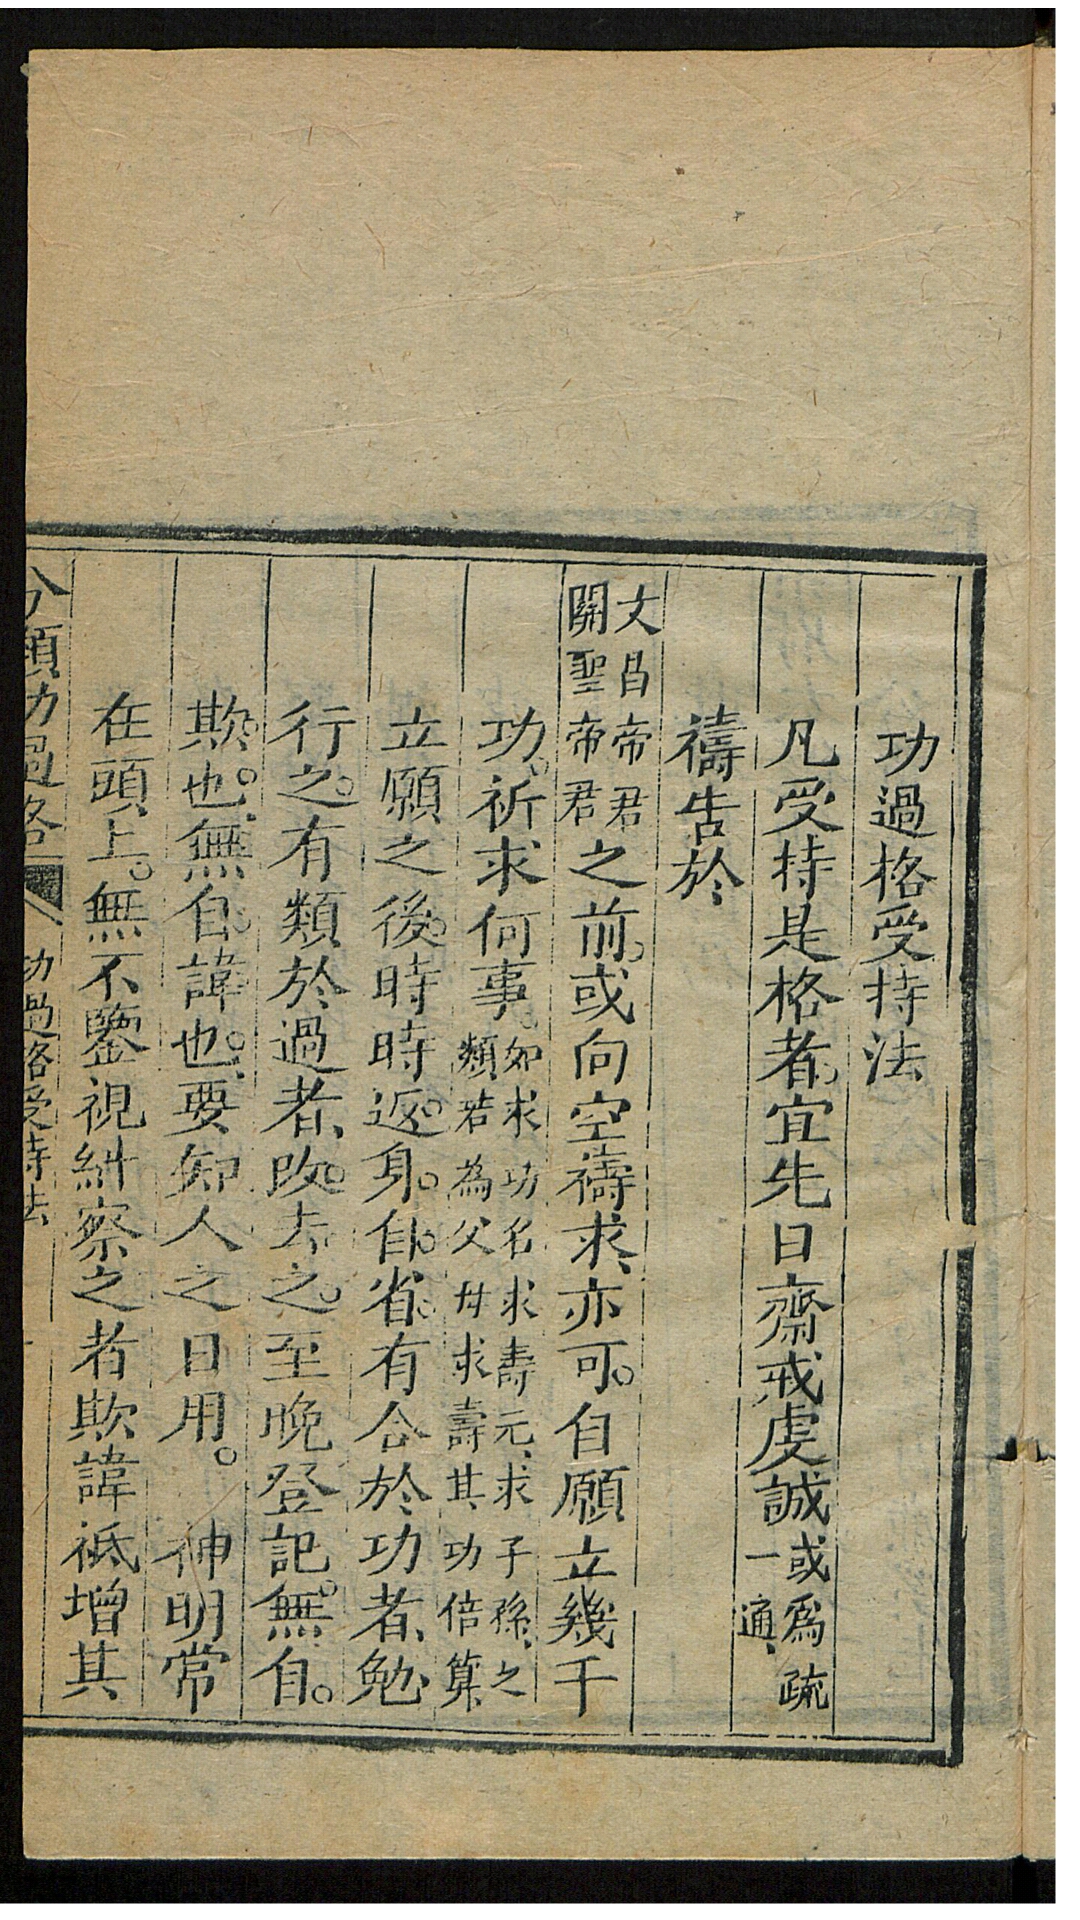 功過格受持法
凡受持是格者、宜先日齋戒虔誠或爲疏一通、
禱告於
文昌帝君
關聖帝君之前、或向空禱求、亦可。自願立幾千
功。祈求何事。如求功名求壽元、求子孫、之類若為父母求壽其功倍算、
立願之後。時時返。身。自。省。有合於功者、勉、
行之。有類於過者、改。去。之。至晚登記。無。自。
欺。也。無。自。諱。也。要知人之日用。　神明常
在頭上。無不鑒視糾察之者欺諱祗增其
分類功過格　功過格受持法　一